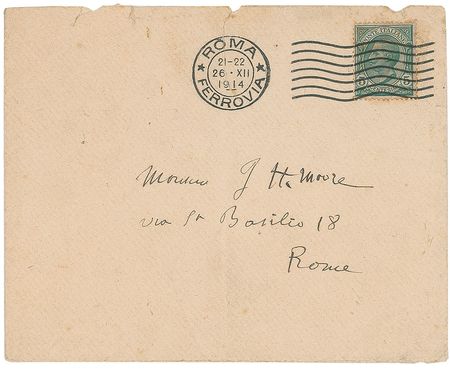 ROMA
21-22
26·XII
1914
FERROVIA
POSTE ITALIANE
5 5
Monsieur J H. Moore
via Sn Basilio 18
Rome